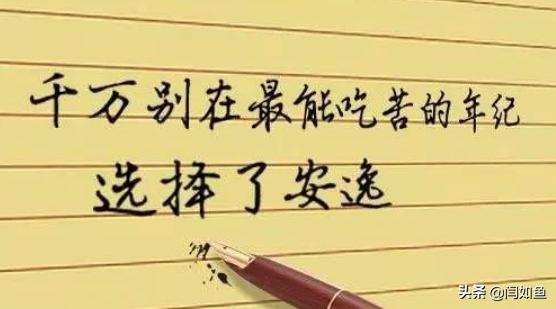 千万别在最能吃苦的年纪
选择了安逸
头条 @闫如鱼